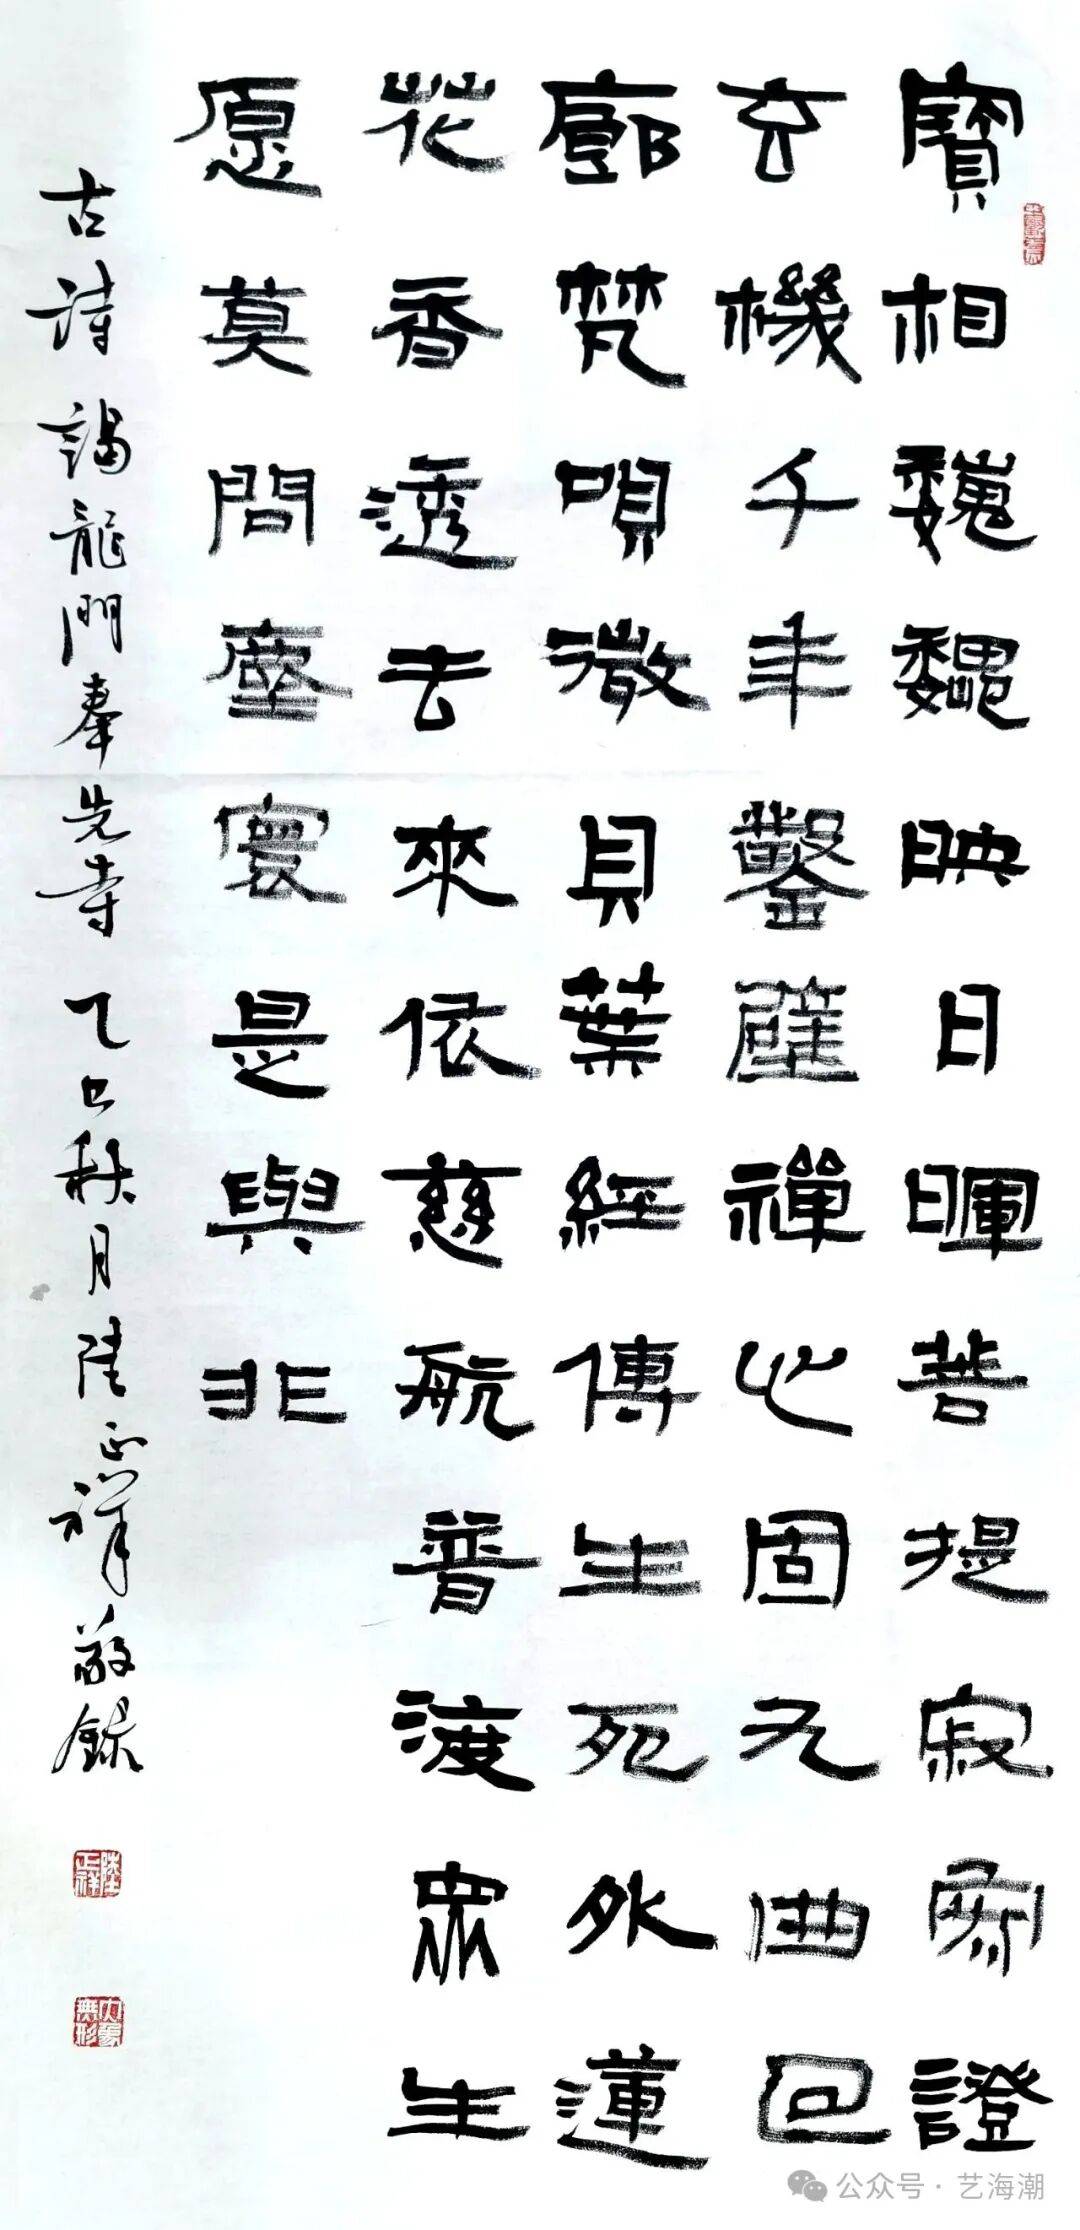 寶相巍巍映日暉菩提寂寥證
玄機千年鑿壁禪心固九曲回
廊梵唄微貝葉經傳生死外蓮
花香透去來依慈航普渡眾生
愿莫問塵寰是與非
古詩謁龍門奉先寺乙巳秋月陸正祥敬錄
陸正祥
大象無形
公众号·艺海潮